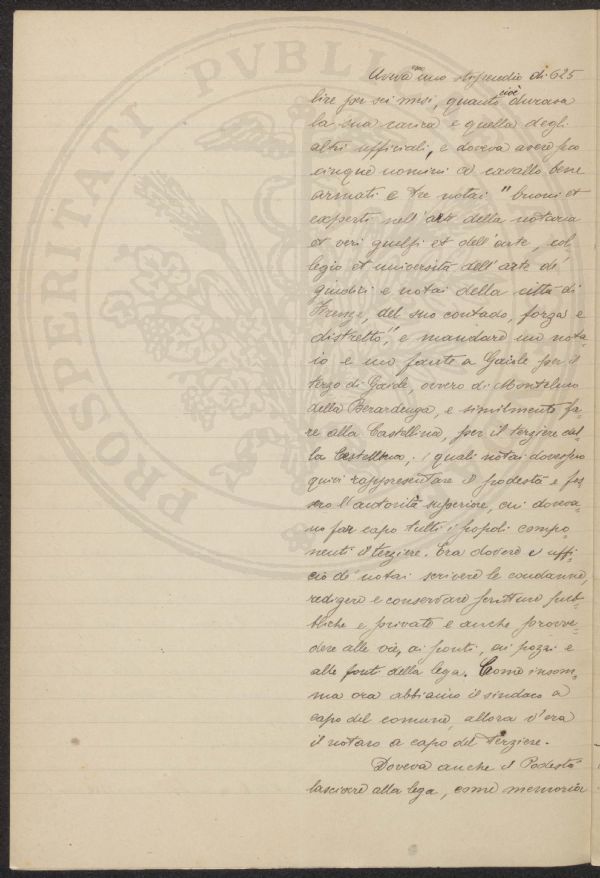 PROSPERITATI PVBLI
Aveva uno stipendio di 625
lire per sei mesi, quanto cioè durava
la sua carica e quella degli
altri ufficiali, e doveva avere
cinque uomini a cavallo bene
armati e tre notai "buoni et
experti nell'arte della notaria
et veri guelfi et dell'arte, col-
legio et università dell'arte de'
giudici e notai della città di
Firenze, del suo contado, forza e
distretto", e mandare un nota-
io e un fante a Gaiole per il
terzo di Gaiole, ovvero di Monteluco
della Berardenga, e similmente fa-
re alla Castellina, per il terziere del-
la Castellina; i quali notai dovessero
quivi rappresentare il podestà e fos-
sero l'autorità superiore, cui doveva-
no far capo tutti i popoli compo-
nenti il terziere. Era dovere e uffi-
cio de' notai scrivere le condanne,
redigere e conservare scritture pub-
bliche e private e anche provve-
dere alle vie, ai ponti, ai pozzi e
alle fonti della lega. Come insom-
ma ora abbiamo il sindaco a
capo del comune, allora v'era
il notaro a capo del terziere.
Doveva anche il Podestà
lasciare alla lega, come memoria